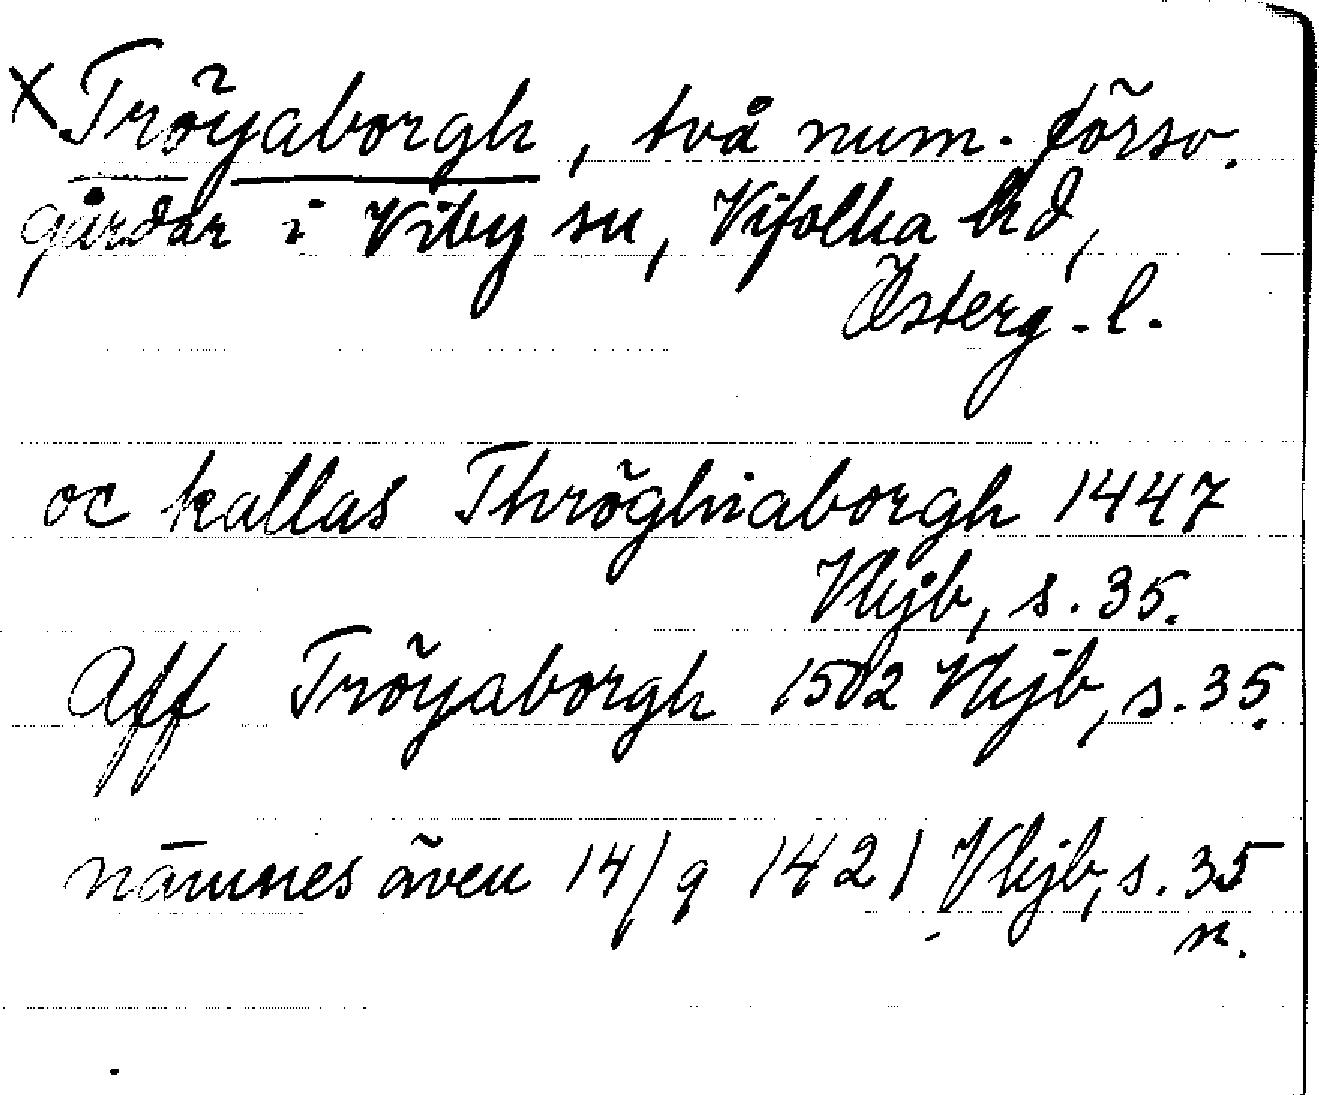 x Tröyaborgh, två num. försv.
gårdar i Viby sn, Vifolka hd,
Österg. l.
oc kallas Thröghiaborgh 1447
Vkjb, s. 35.
Aff Tröyaborgh 1502 Vkjb, s. 35.
nämnes även 14/9 1421 Vkjb, s. 35
n.